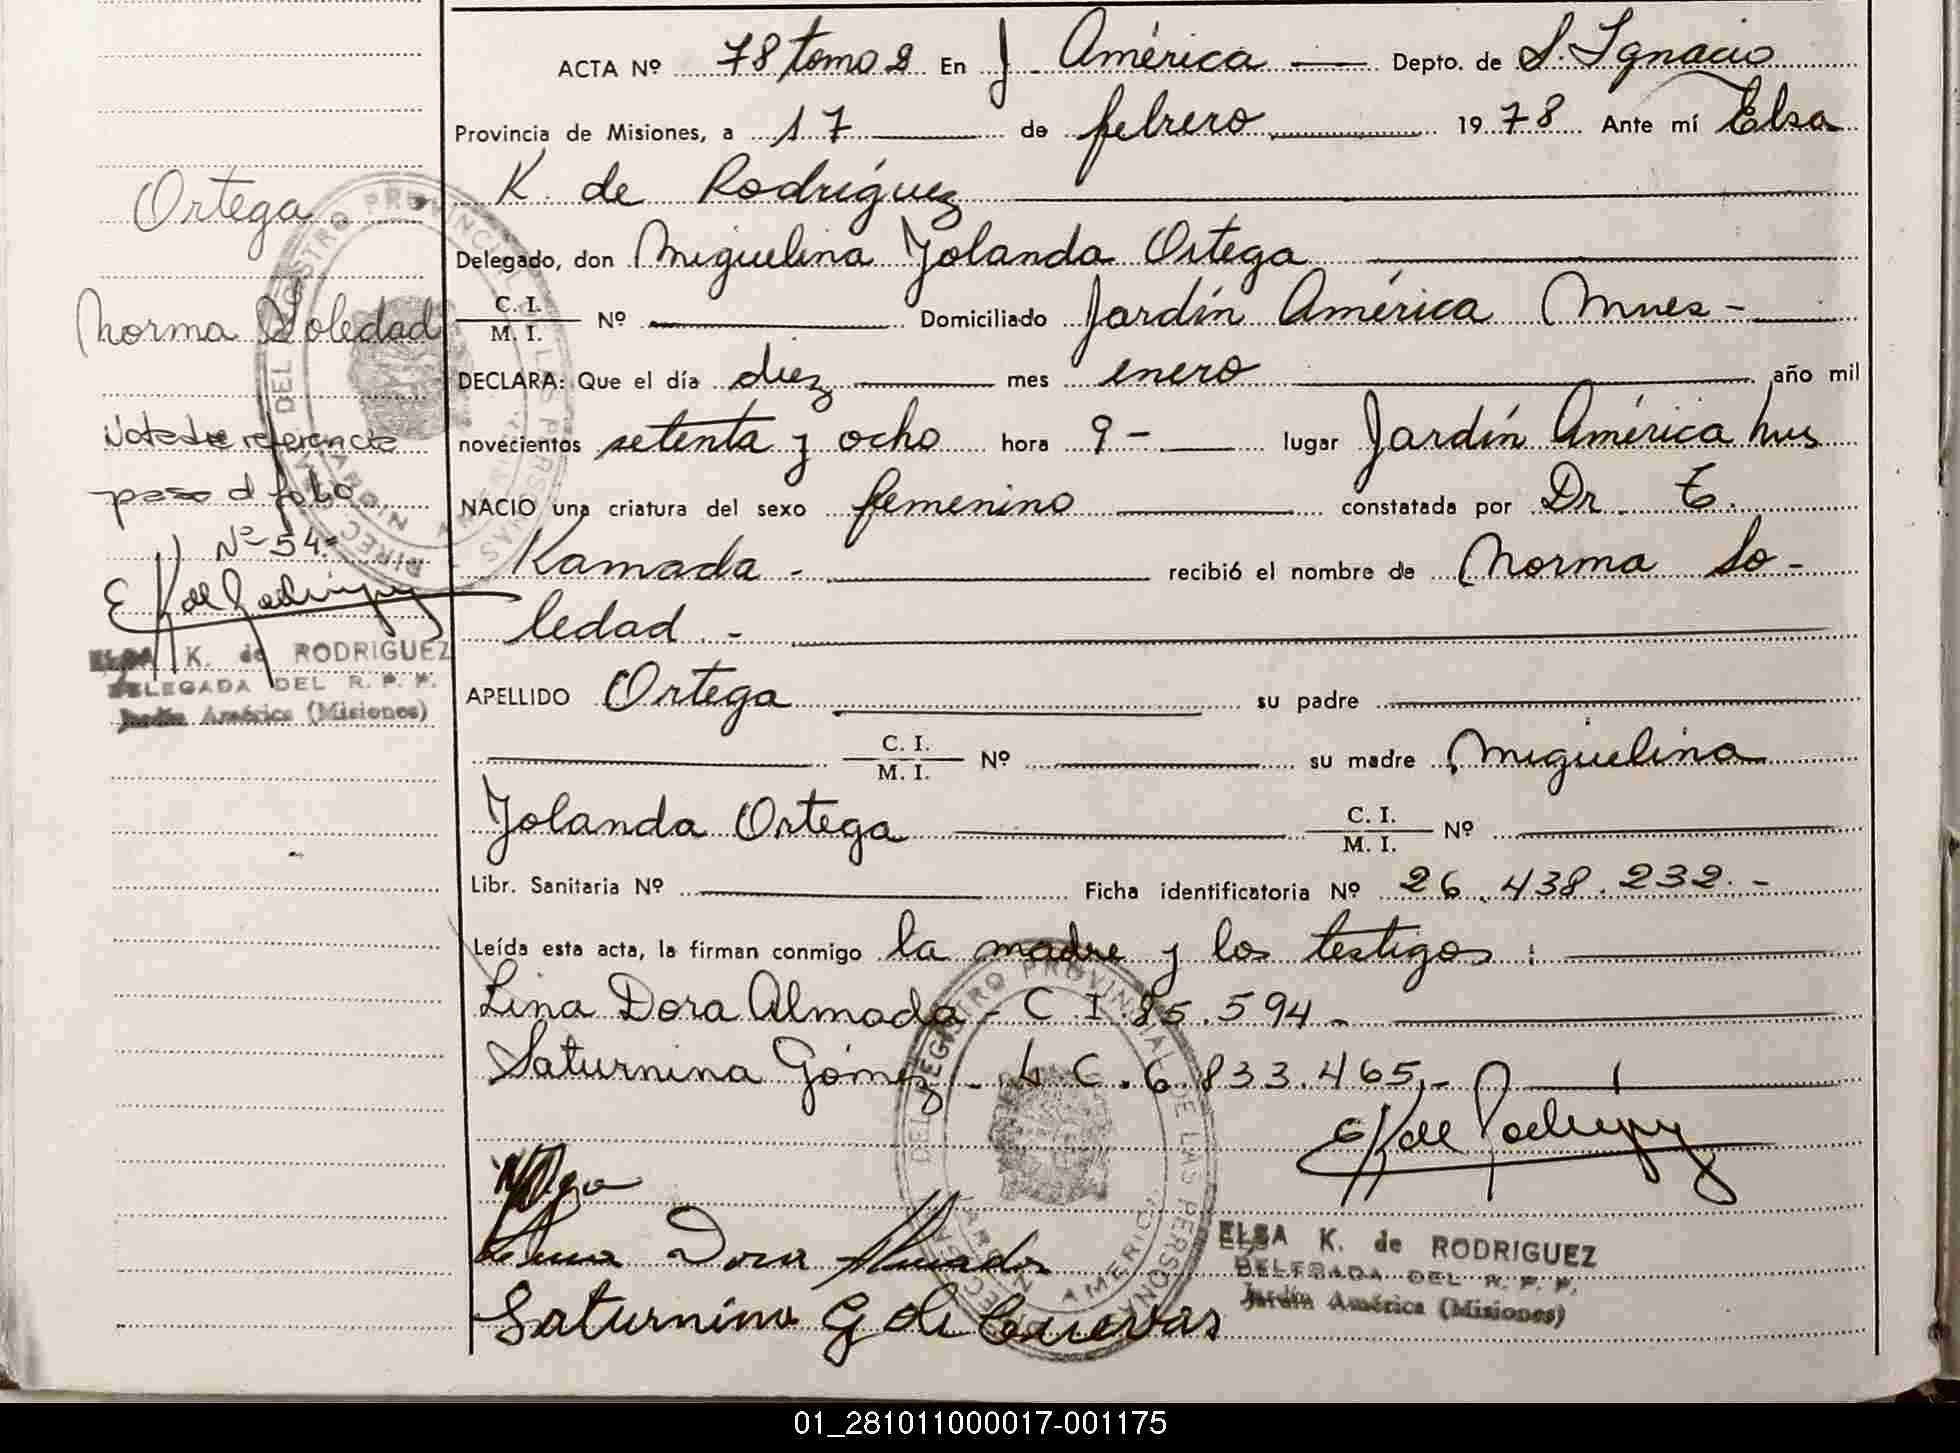 ACTA Nº 78 tomo 2 En J. América Depto. de S. Ignacio
Provincia de Misiones, a 17 de febrero 1978 Ante mí Elsa
K. de Rodríguez
Delegado, don Miguelina Yolanda Ortega
C. I.
M. I. Nº Domiciliado Jardín América Mnes -
DECLARA: Que el día diez mes enero año mil
novecientos setenta y ocho hora 9 - lugar Jardín América
NACIO una criatura del sexo femenino constatada por Dr. T.
Kamada - recibió el nombre de Norma So-
ledad. -
APELLIDO Ortega su padre
C. I.
M. I. Nº su madre Miguelina
Yolanda Ortega C. I.
M. I. Nº
Libr. Sanitaria Nº Ficha identificatoria Nº 26.438.232. -
Leída esta acta, la firman conmigo la madre y los testigos:
Lina Dora Almada - C.I. 85.594 -
Saturnina Gómez - L C. 6.833.465. -
E K de Rodríguez
Lina Dora Almada
Saturnina G de Cuevas
ELSA K. de RODRIGUEZ
DELEGADA DEL R. P. P.
Jardín América (Misiones)
Ortega
Norma Soledad
Nota de referencia
paso al folio
Nº 54 -
E K de Rodríguez
ELSA K. de RODRIGUEZ
DELEGADA DEL R. P. P.
Jardín América (Misiones)
REGISTRO PROVINCIAL DE LAS PERSONAS
REGISTRO PROVINCIAL DE LAS PERSONAS
01_281011000017-001175